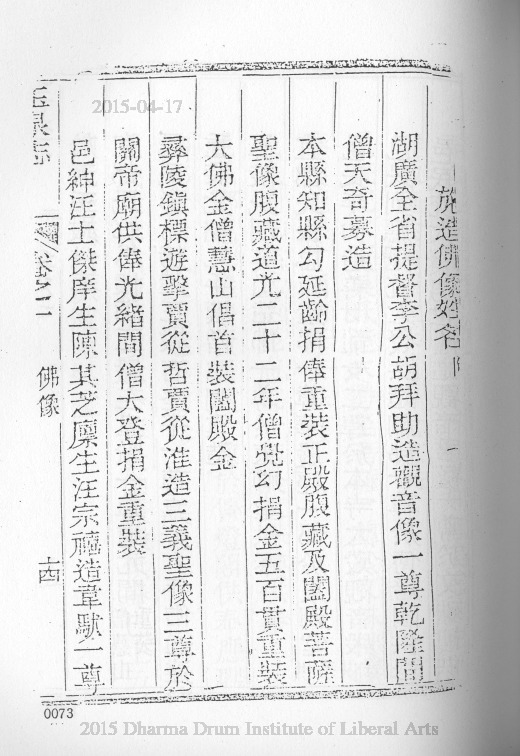 施造佛像姓名附
湖廣全省提督李公胡拜助造觀音像一尊乾隆間
僧天奇募造
本縣知縣勾延齡捐俸重裝正殿腹藏及闔殿菩薩
聖像腹藏道光二十二年僧覺幻捐金五百貫重裝
大佛金僧慧山倡首裝闔殿金
彝陵鎮標遊擊賈從哲賈從淮造三義聖像三尊於
關帝廟供俸光緒間僧大登捐金重裝
邑紳汪士傑庠生陳其芝廩生汪宗禧造韋馱一尊
玉泉志
卷之二
佛像
十四
2015-04-17
0073
2015 Dharma Drum Institute of Liberal Arts